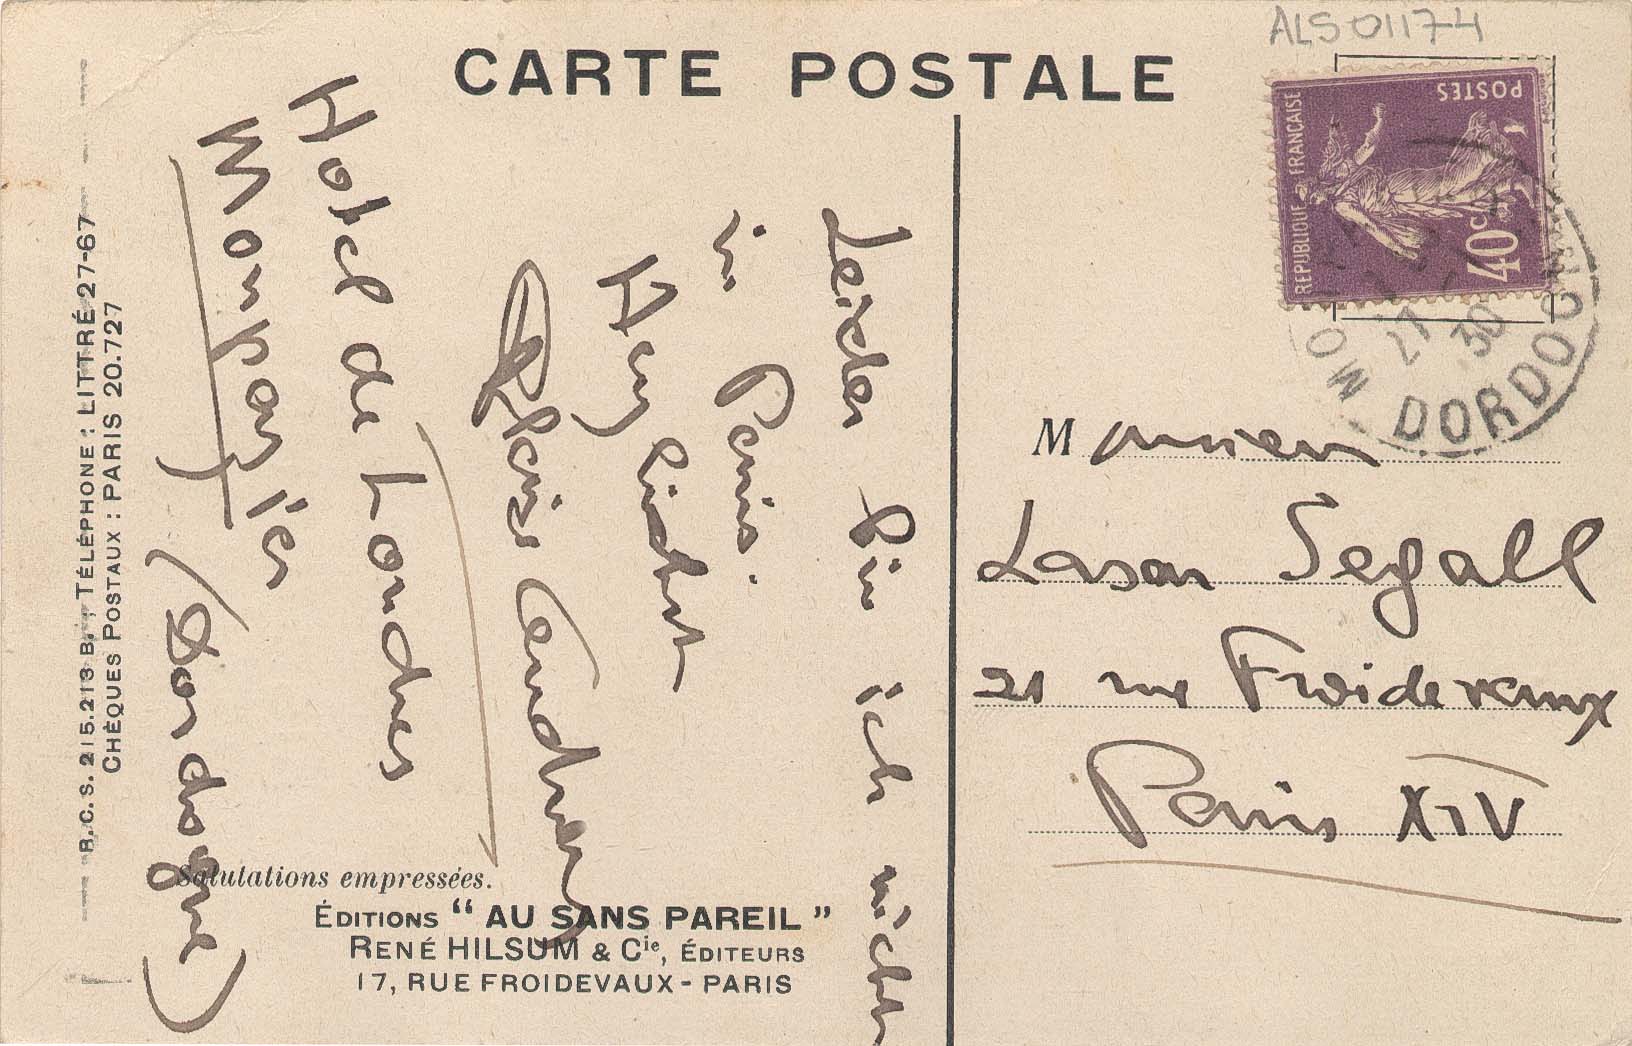 ALS 01174
CARTE POSTALE
RÉPUBLIQUE FRANÇAISE
POSTES
40c
27
30
DORDOGNE
Leider bin ich nicht
in Paris.
Herzlichst
Blaise Cendrars
Hotel de Londres
Monpazier
(Dordogne)
R.C.S. 215.213 B., TÉLÉPHONE : LITTRÉ 27-67
CHÈQUES POSTAUX : PARIS 20.727
Salutations empressées.
ÉDITIONS “ AU SANS PAREIL ”
RENÉ HILSUM & Cie, ÉDITEURS
17, RUE FROIDEVAUX - PARIS
Monsieur
Lasar Segall
21 rue Froidevaux
Paris XIV